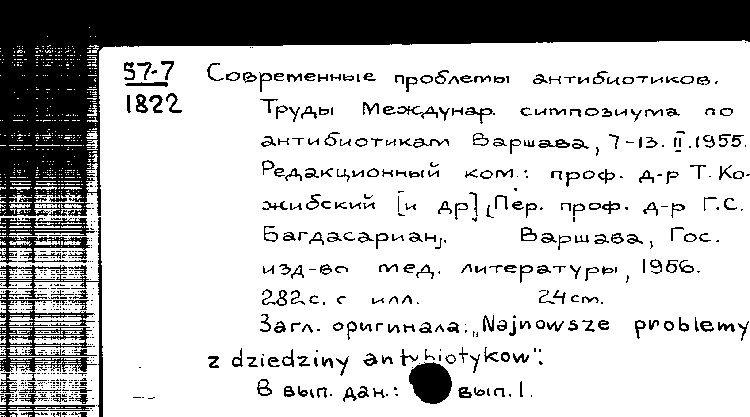 57-7 Современные проблемы антибиотиков.
1822 Труды Междунар. симпозиума по
антибиотикам Варшава, 7-13.II.1955.
Редакционный ком.: проф. д-р Т. Ко-
жибский [и др], Пер. проф. д-р Г.С.
Багдасариан,. Варшава, Гос.
изд-во мед. литературы, 1956.
282 с. с илл. 24 cm.
Загл. оригинала: „Najnowsze problemy
z dziedziny antybiotykow".
В вып. дан.: вып. 1.